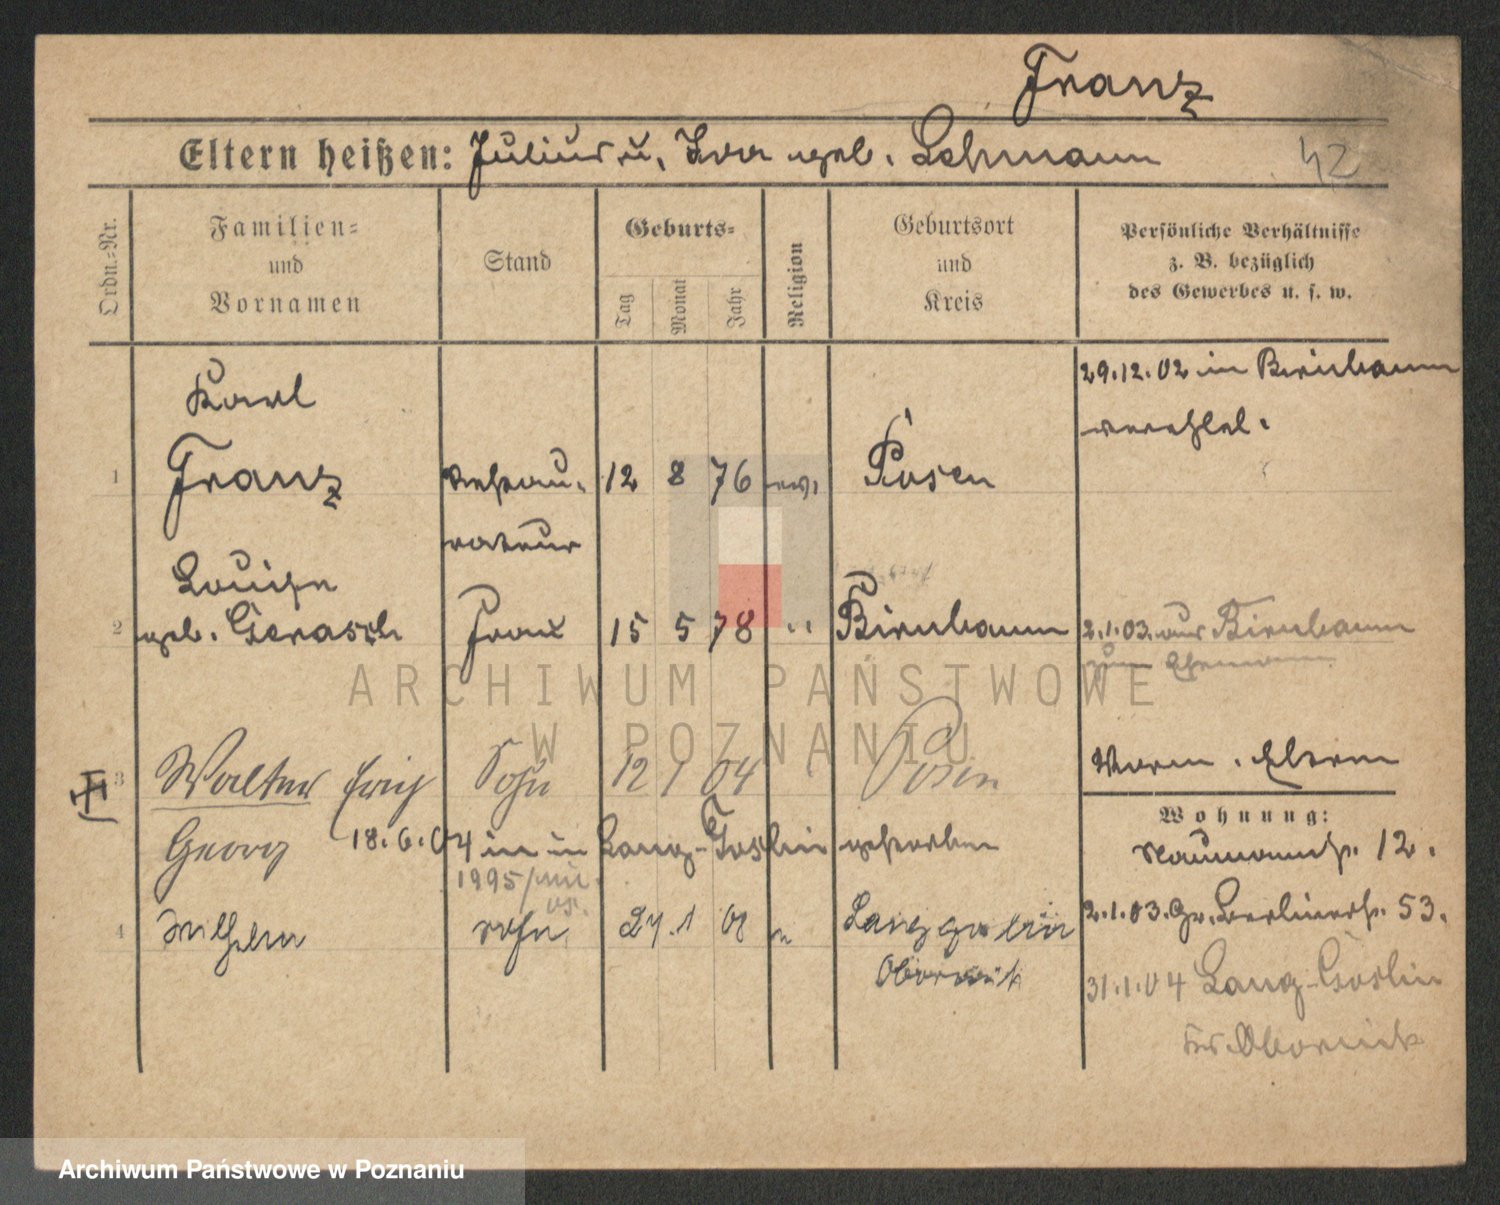 Franz
Eltern heißen: Julius u. Ida geb. Lehmann
42
Ordn.-Nr.
Familien=
und
Vornamen
Stand
Geburts=
Tag
Monat
Jahr
Religion
Geburtsort
und
Kreis
Persönliche Verhältnisse
z. B. bezüglich
des Gewerbes u. s. w.
29.12.02 in Birnbaum
verehel.
Karl
1 Franz Restau- 12 8 76 ev. Posen
rateur
Louise
2 geb. Gerasch Frau 15 5 78 " Birnbaum 2.1.03. aus Birnbaum
zum Ehemann
3 Walter Erich Sohn 12 1 04 Posen
Georg 18.6.04 in Lang-Goslin gestorben
1995/
4 Wilhelm Sohn 27. 1 08 " Lang goslin
Obornik
Worm. Eltern
Wohnung:
Naumannstr. 12.
2.1.03. Gr. Berlinerstr. 53.
31.1.04 Lang-Goslin
Kr. Obornik
ARCHIWUM PAŃSTWOWE
W POZNANIU
Archiwum Państwowe w Poznaniu